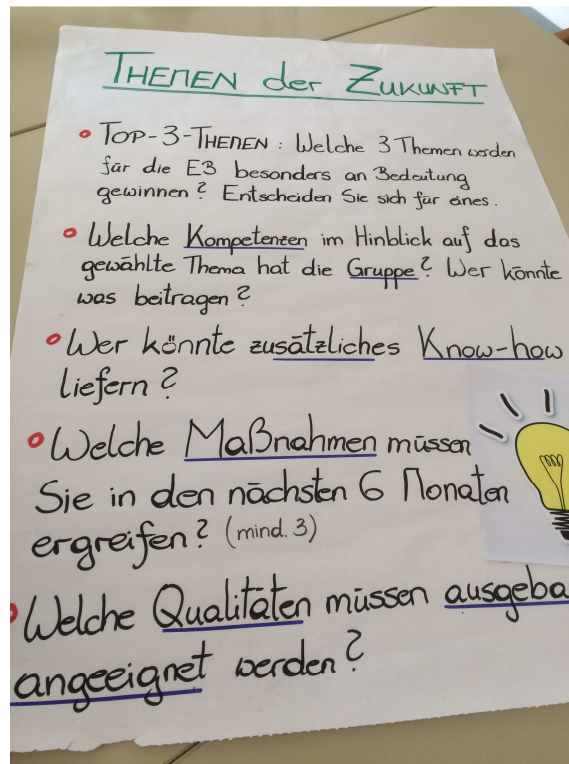 THEMEN der ZUKUNFT
TOP-3-THEMEN: Welche 3 Themen werden
für die EB besonders an Bedeutung
gewinnen? Entscheiden Sie sich für eines.
Welche Kompetenzen im Hinblick auf das
gewählte Thema hat die Gruppe? Wer könnte
was beitragen?
Wer könnte zusätzliches Know-how
liefern?
Welche Maßnahmen müssen
Sie in den nächsten 6 Monaten
ergreifen? (mind. 3)
Welche Qualitäten müssen ausgeba
angeeignet werden?